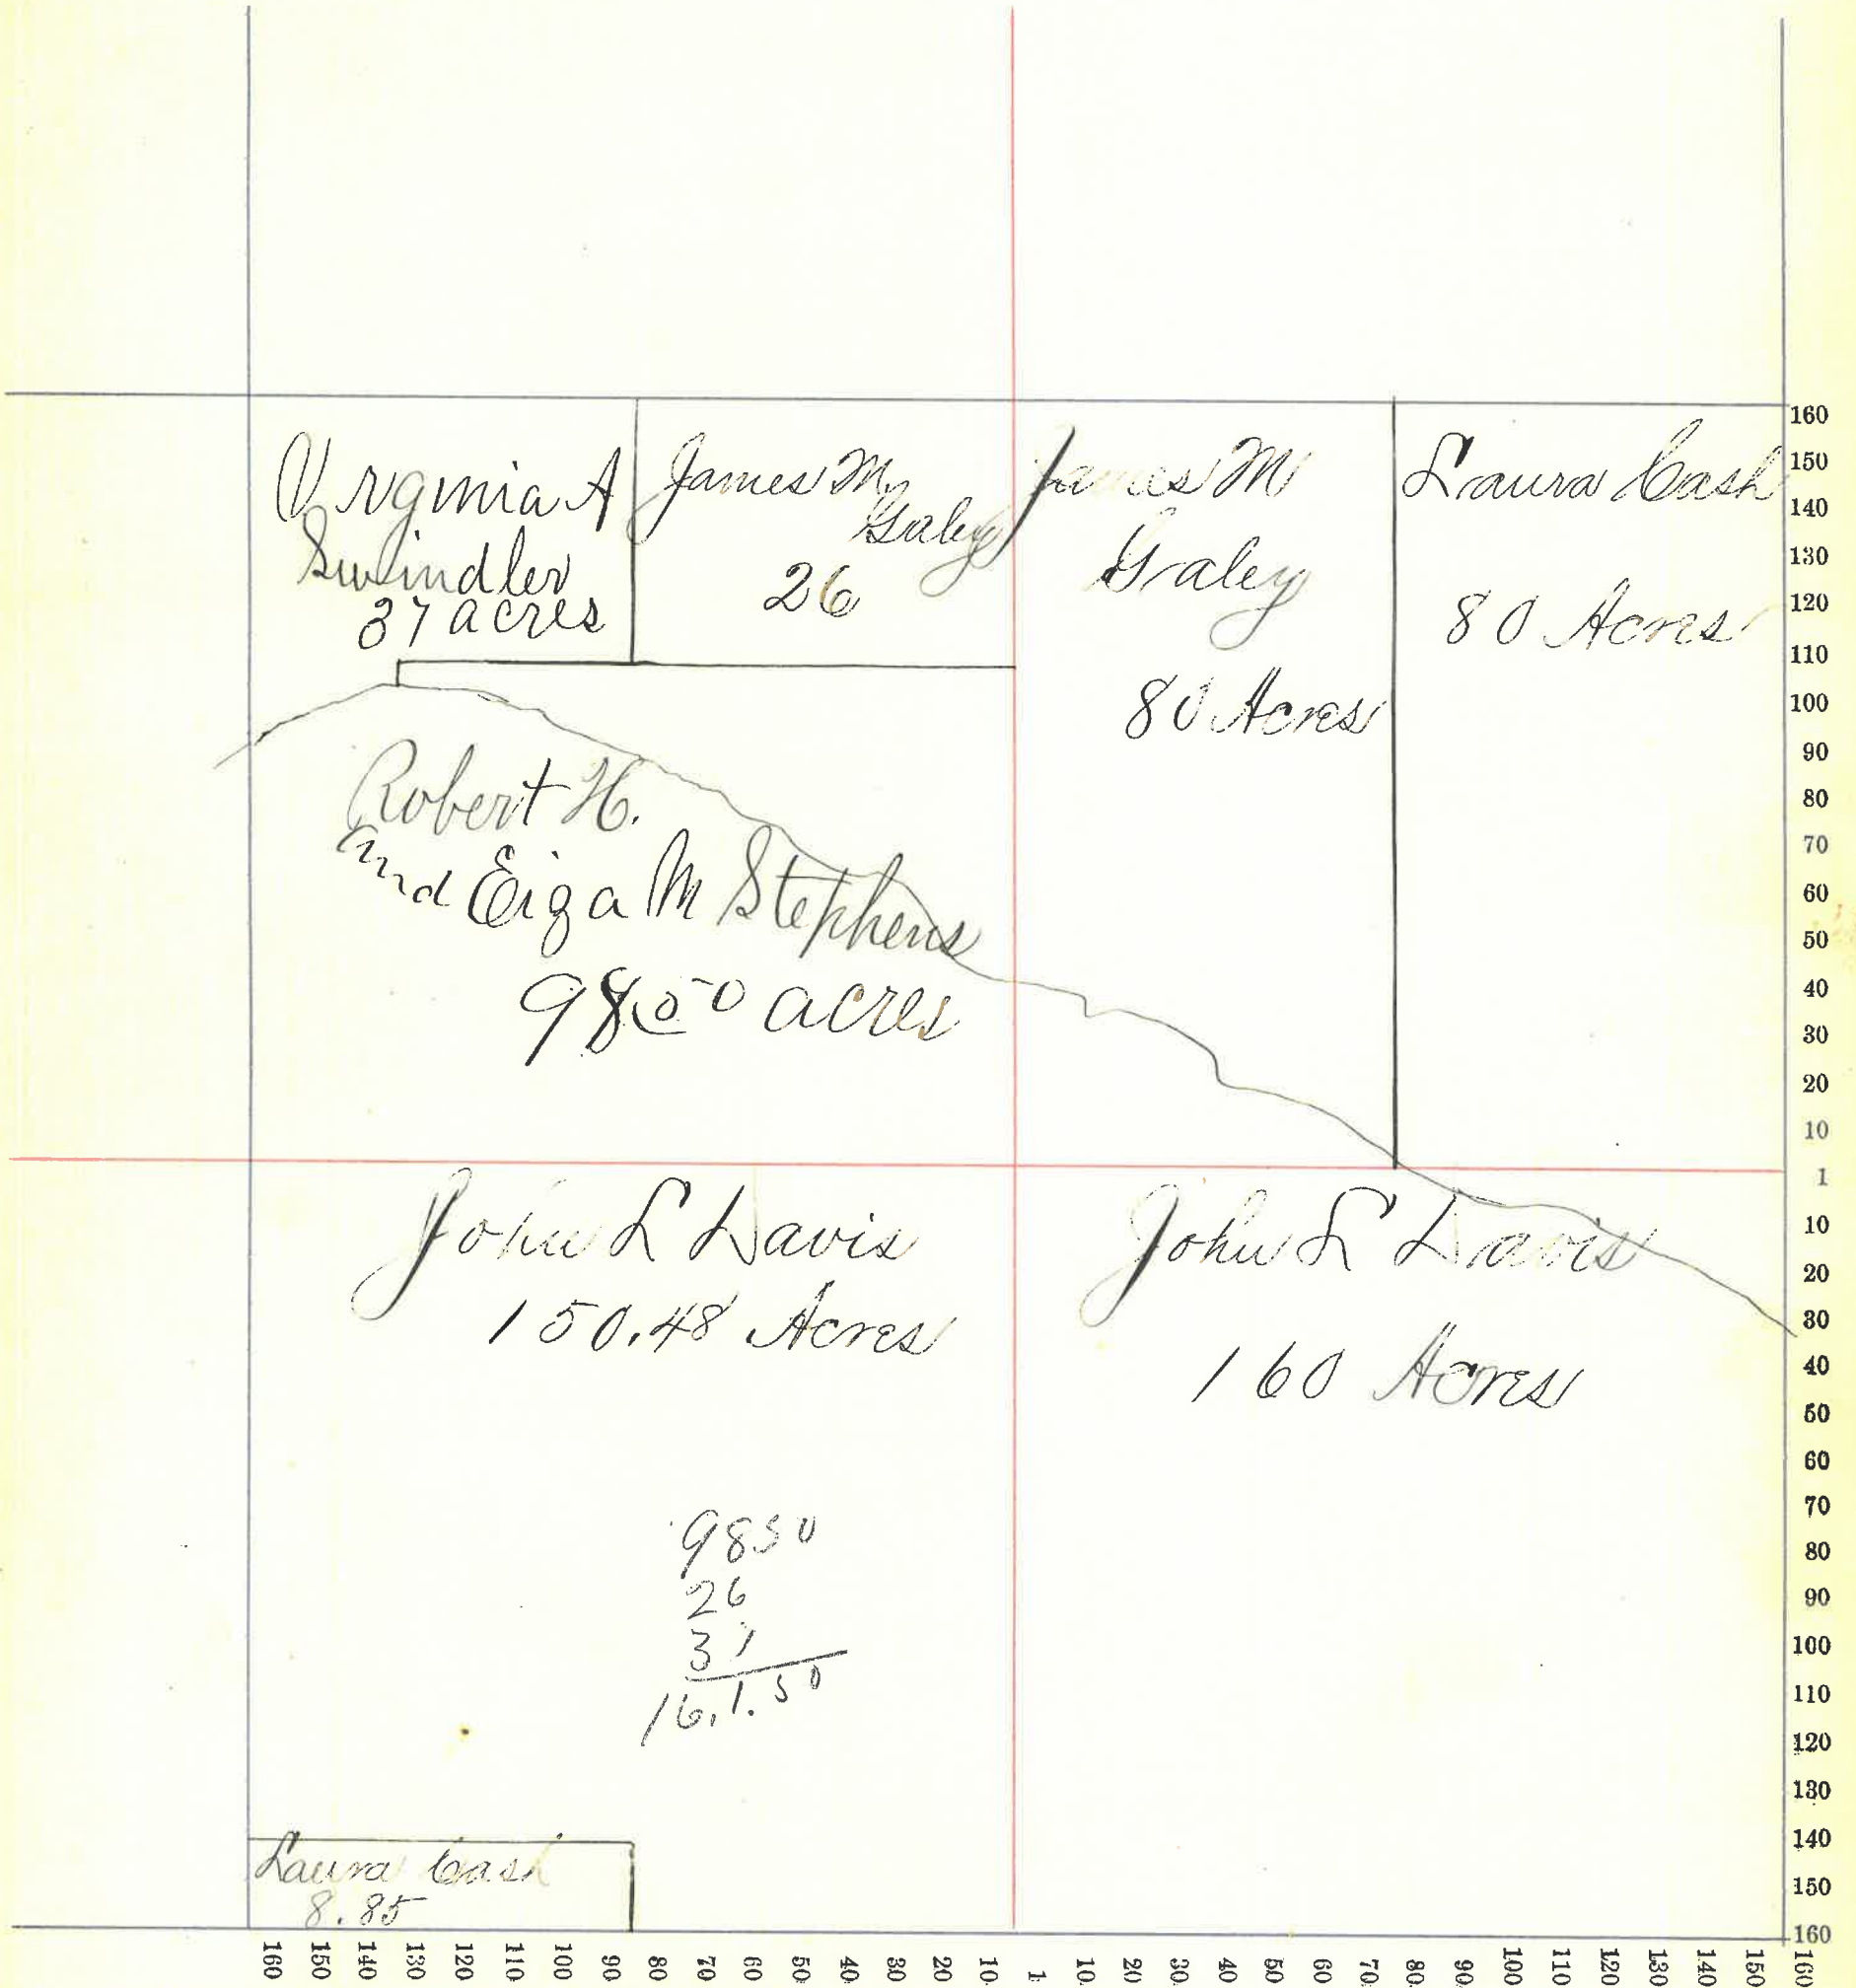 Virgmia A
Swindler
37 acres
James M
Galey
26
James M
Galey
80 Acres
Laura Cash
80 Acres
Robert H.
and Eiza M Stephens
98.50 acres
John L Davis
150.48 Acres
John L Davis
160 Acres
9850
26
37
16.1.50
Laura Cash
8.85
160
150
140
130
120
110
100
90
80
70
60
50
40
30
20
10
1
10
20
30
40
50
60
70
80
90
100
110
120
130
140
150
160
160 150 140 130 120 110 100 90 80 70 60 50 40 30 20 10 1 10 20 30 40 50 60 70 80 90 100 110 120 130 140 150 160